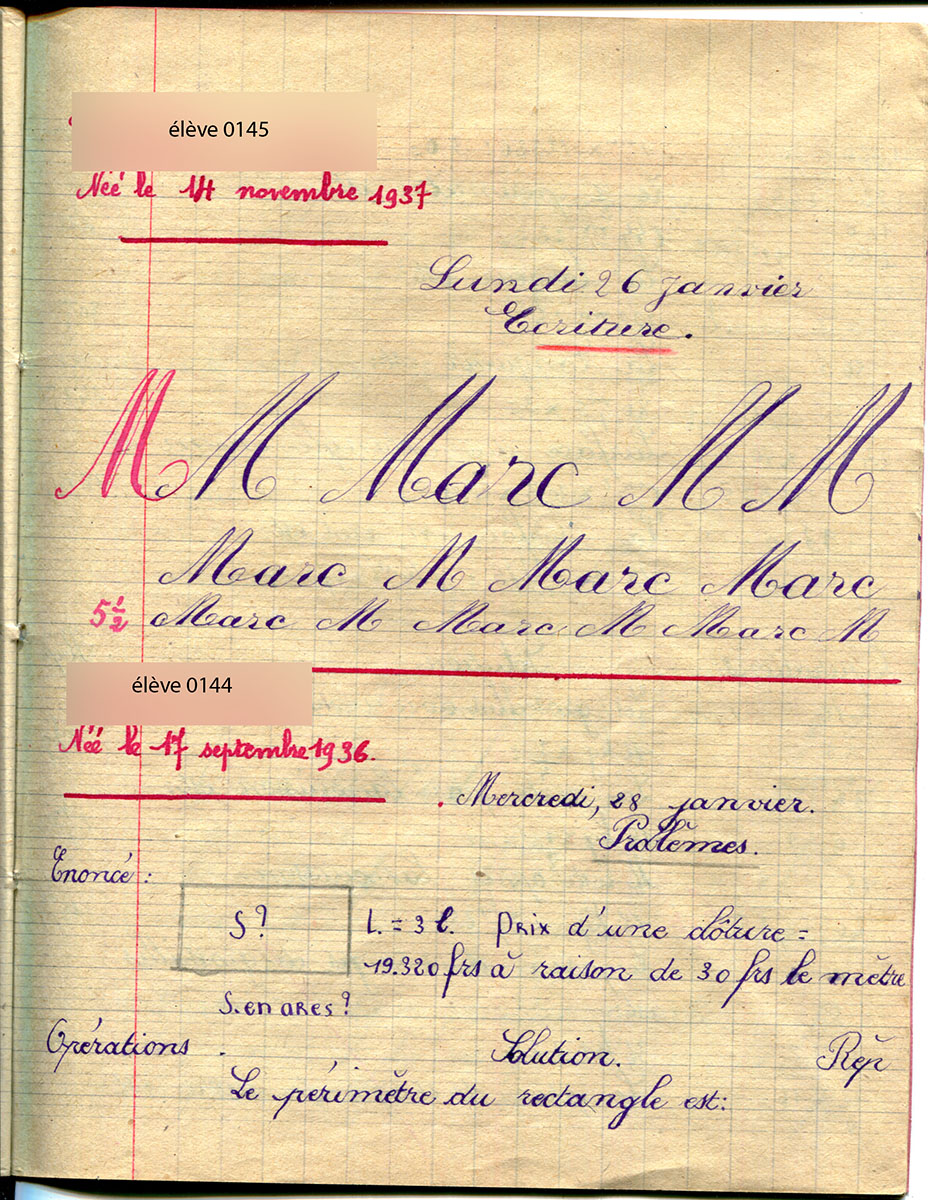 élève 0145
Néé le 14 novembre 1937
Lundi 26 Janvier
Ecriture.
M M Marc M M
Marc M Marc Marc
5 1/2 Marc M Marc M Marc M
élève 0144
Néé le 17 septembre 1936.
Mercredi, 28 janvier.
Problèmes.
Enoncé :
S? L. = 3 l. Prix d'une clôture =
19.320 frs à raison de 30 frs le mètre
S. en ares ?
Opérations . Solution. Rép
Le périmètre du rectangle est: